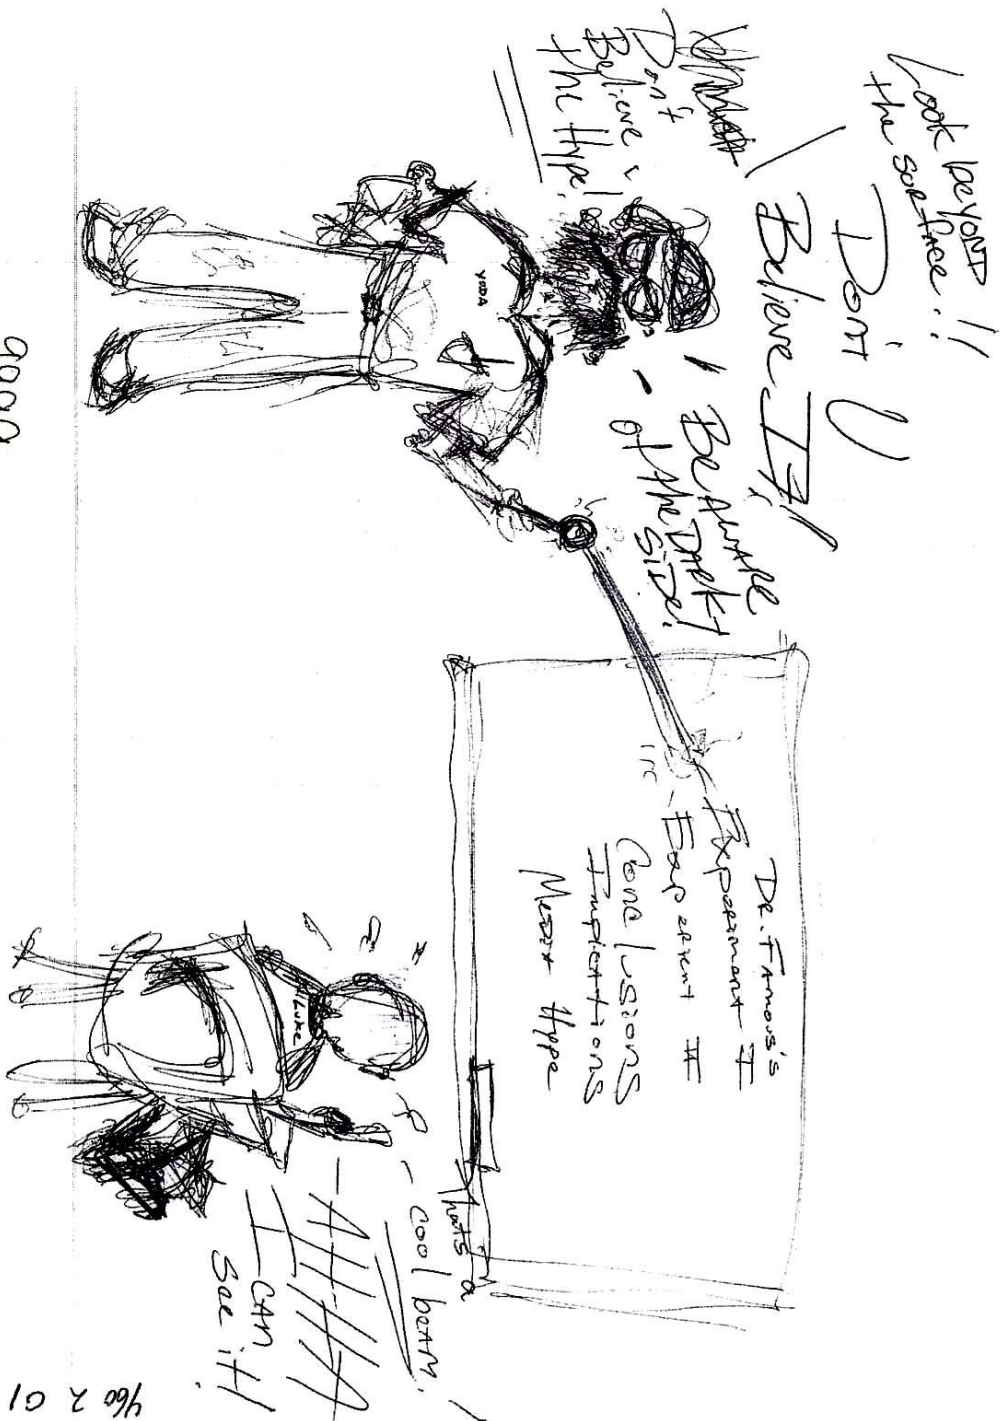 Look beyonD
the sorface!!
Don't U
Believe It!
Don't
Believe
the Hype!
Be AwARE
of the DARK
SiDe!
YODA
DR. FAmous's
Experiment I
- Experiment II
Conclusions
Implications
Media Hype
Luke
thats a
cool beAM!
- AHHHA
I CAN
See it!